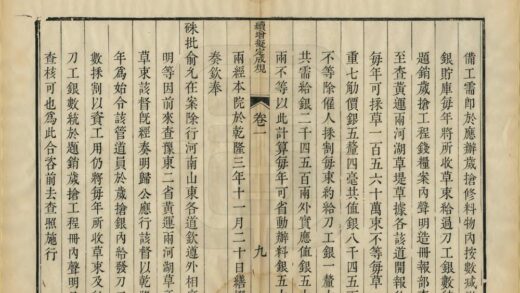 備工需即於應辦歲搶修料物內按數減
銀貯庫每年將所收草束給過刀工銀數
題銷歲搶工程錢糧案內聲明造冊報部
至查黃運兩河湖草是草據各該道開報
每年可採草一百五六十萬束不等每草
重七觔價銀五釐四毫共值銀八千四五
不等除僱人採割每束約給刀工銀一釐
共需給銀二千四五百兩外實應值銀五
兩不等以此計算每年可省動辦料銀五
續增擬定成規 卷一 九
兩經本院於乾隆三年十一月二十日繕
奏欽奉
硃批俞允在案除行河南山東各道欽遵外相
明等因前來查豫東二省黃運兩河湖草
草束該督旣經奏明歸公應行該督以乾
年為始令該管道員於歲搶銀內給發刀
數採割以資工用仍將每年所收草束及
刀工銀數統於題銷歲搶工程冊內聲明
查核可也爲此合咨前去查照施行